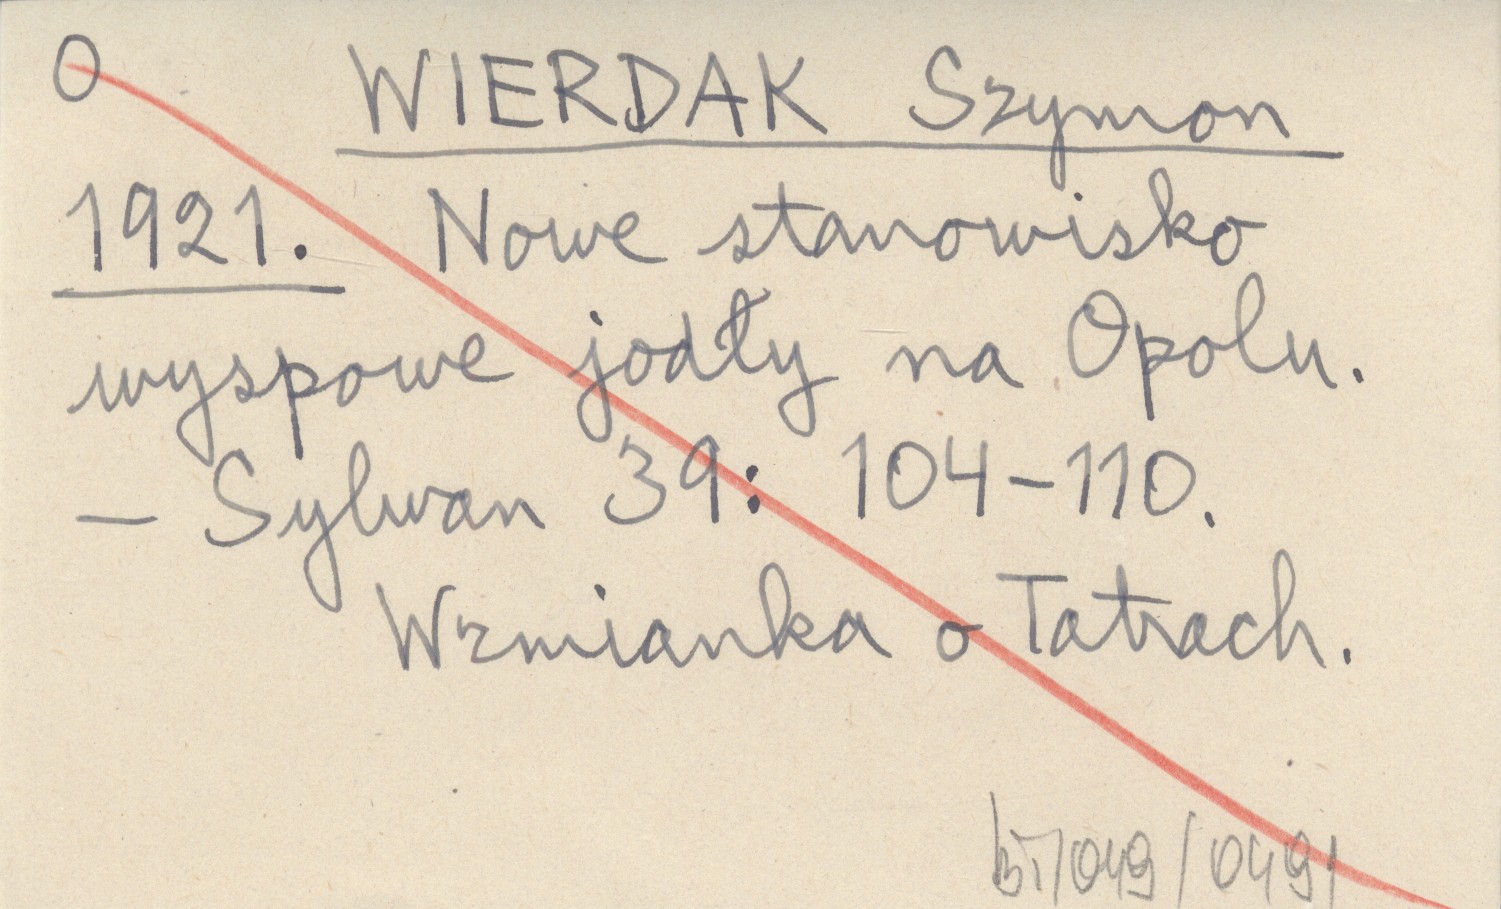 O WIERDAK Szymon
1921. Nowe stanowisko
wyspowe jodły na Opolu.
— Sylwan 39: 104-110.
Wzmianka o Tatrach.
bT/049/0491